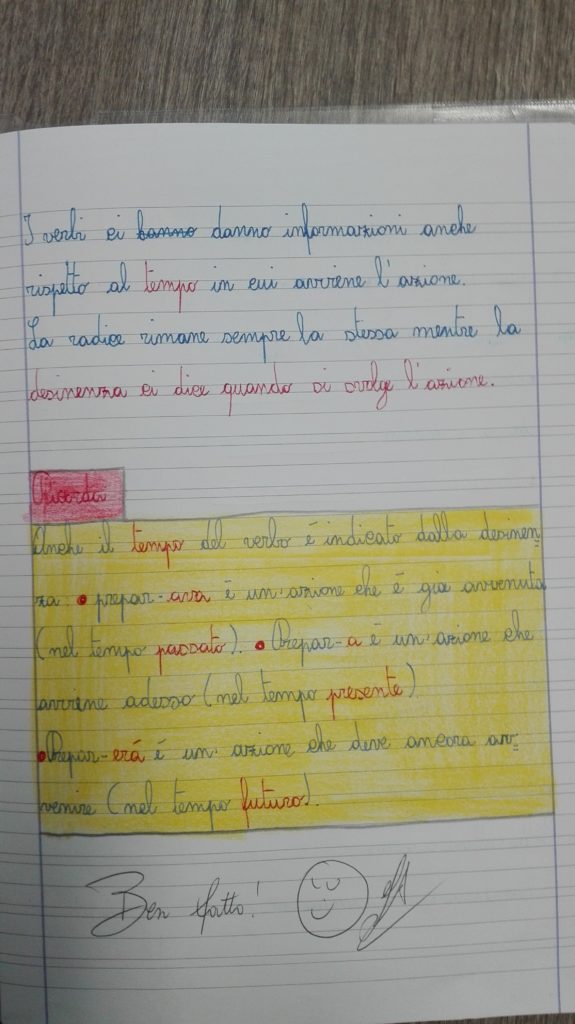 I verbi ci hanno danno informazioni anche
rispetto al tempo in cui avviene l'azione.
La radice rimane sempre la stessa mentre la
desinenza ci dice quando si svolge l'azione.
Ricorda
Anche il tempo del verbo è indicato dalla desinen=
za: • prepar-ava è un'azione che è già avvenuta
(nel tempo passato). • Prepar-a è un'azione che
avviene adesso (nel tempo presente).
• Prepar-erá è un'azione che deve ancora av=
venire (nel tempo futuro).
Ben fatto!